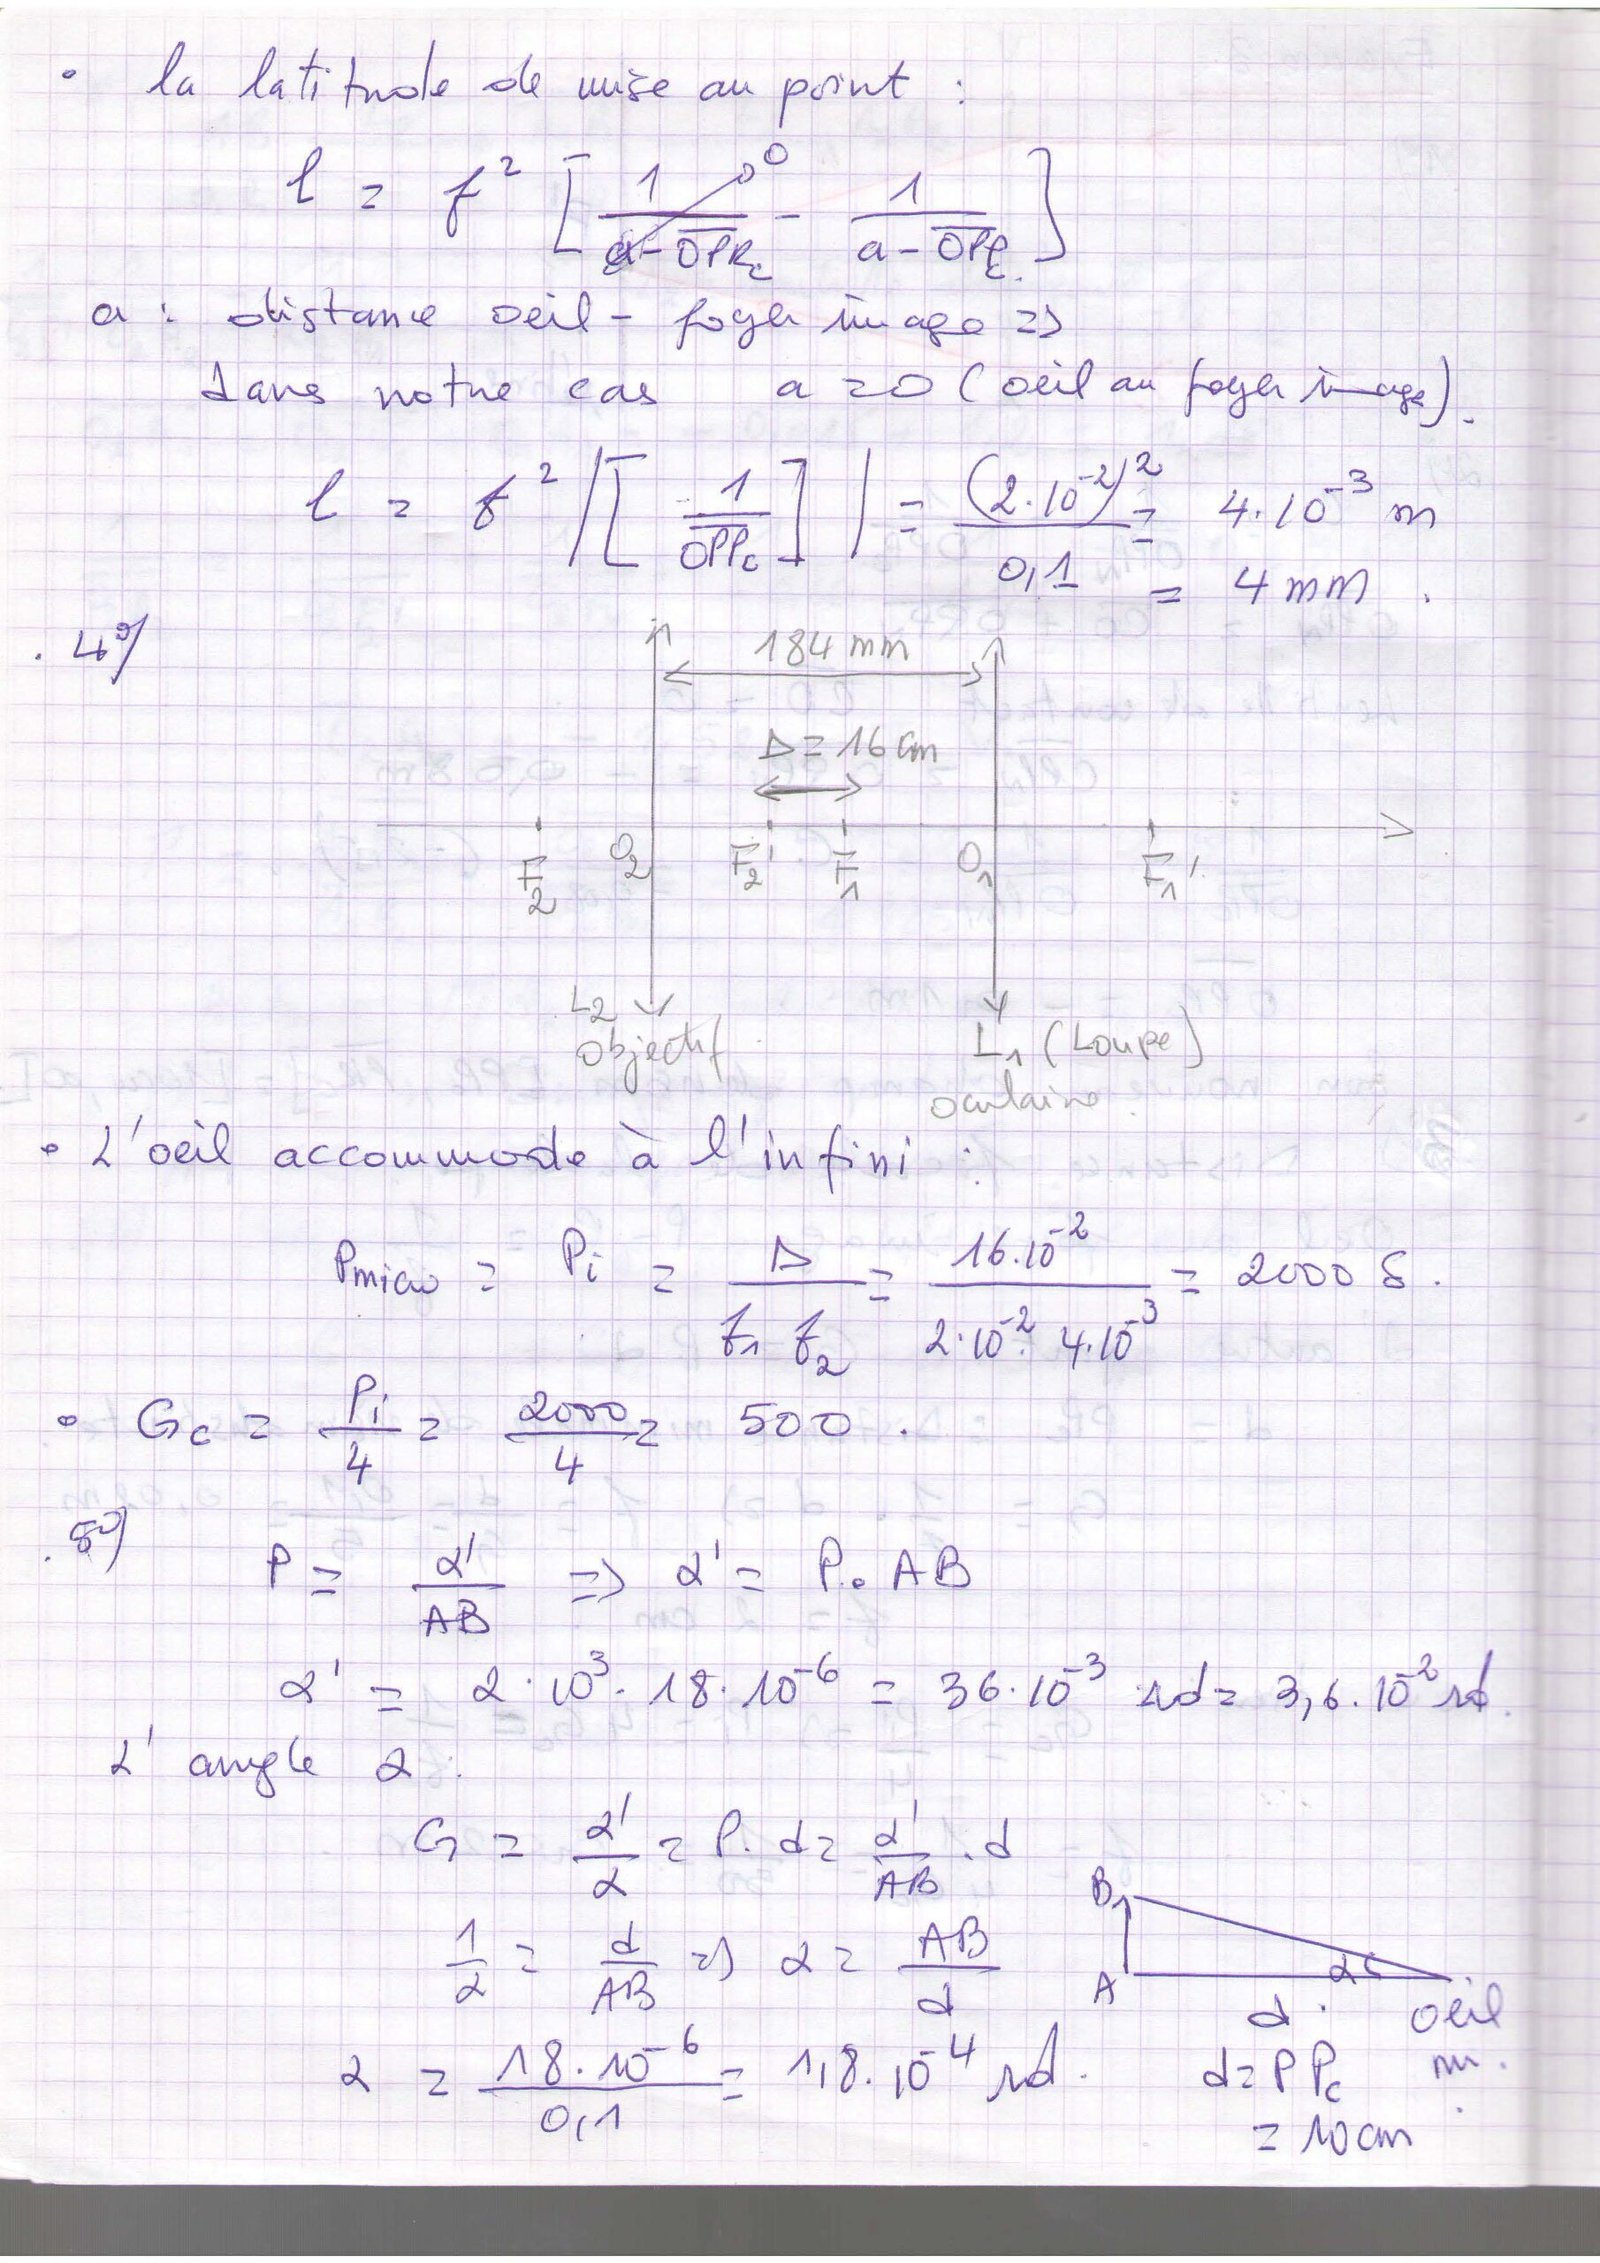 • la latitude de mise au point :
l = f² [ 1/(a - OPRc) → 0 - 1/(a - OPPc) ]
a : distance oeil - foyer image ⇒
dans notre cas a = 0 (oeil au foyer image).
l = f² |[ 1/OPPc ]| = (2.10⁻²)²/0,1 = 4.10⁻³ m
= 4 mm.
. 4°/
184 mm
Δ = 16 cm
F2 O2 F2' F1 O1 F1'
L2 Objectif
L1 (Loupe) oculaire
• L'oeil accommode à l'infini :
Pmicro = Pi = Δ/(f1 f2) = 16.10⁻²/(2.10⁻². 4.10⁻³) = 2000 δ.
• Gc = Pi/4 = 2000/4 = 500.
. 5°/
P = α'/AB ⇒ α' = P. AB
α' = 2.10³. 18.10⁻⁶ = 36.10⁻³ rd = 3,6.10⁻² rd.
L'angle α :
G = α'/α = P. d = α'/AB . d
1/α = d/AB ⇒ α = AB/d
B A α d oeil nu.
α = 18.10⁻⁶/0,1 = 1,8.10⁻⁴ rd.
d = PPc
= 10 cm